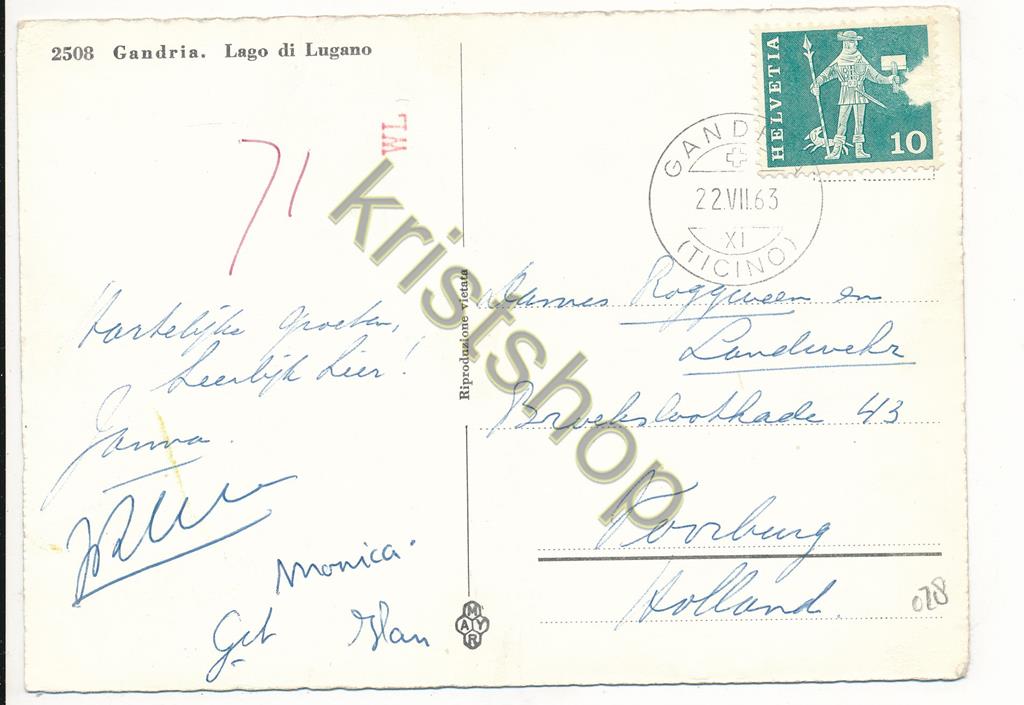 2508 Gandria. Lago di Lugano
HELVETIA
10
GANDRIA
22.VII.63
XI
(TICINO)
WL
71
kristshop
Riproduzione vietata
Hartelijke groeten,
heerlijk hier!
Janna.
Monica.
Get Han
MAYR
Dames Roggeveen en
Landwehr
Broeksloothkade 43
Voorburg
Holland.
028